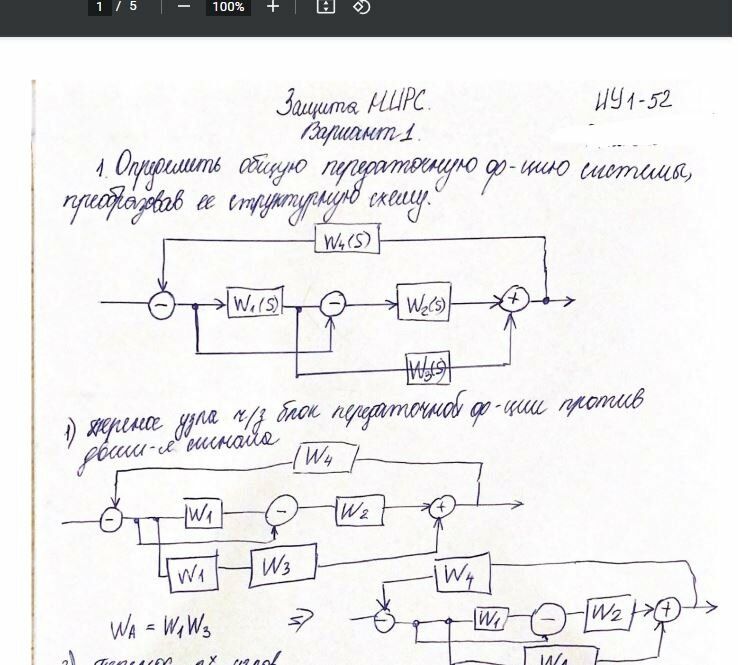 1 / 5 100%
Защита МИРС. ИУ1-52
Вариант 1.
1. Определить общую передаточную ф-цию системы,
преобразовав ее структурную схему.
W4(S)
- W1(S) - W2(S) +
W3(S)
1) перенос узла ч/з блок передаточной ф-ции против
движ-я сигнала
W4
- W1 - W2 +
W1 W3
W4
- W1 - W2 +
WA = W1W3 =>